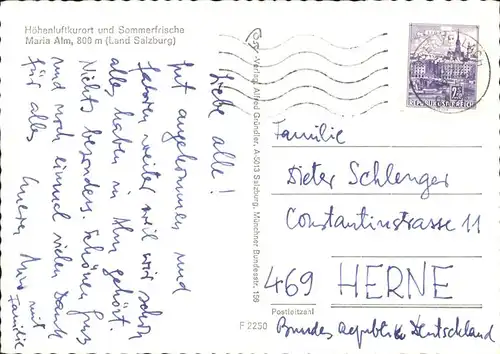 Höhenluftkurort und Sommerfrische
Maria Alm, 800 m (Land Salzburg)
Liebe alle!
Gut angekommen und
fahren weiter weil wir schon
alles haben in Alm gehört.
Nichts besonders. Schönen Gruß
und noch einmal vielen Dank
für alles
mit
Familie
Cosy-Verlag Alfred Gründler, A-5013 Salzburg, Münchner Bundesstr. 156
REPUBLIK ÖSTERREICH
Familie
Dieter Schlenger
Constantinstrasse 11
469 HERNE
Postleitzahl
F 2250
Bundesrepublik Deutschland